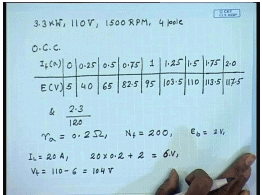 3.3 KW, 110V, 1500 RPM, 4 pole
O.C.C.
If(A) 0 0.25 0.5 0.75 1 1.25 1.5 1.75 2.0
E(V) 5 40 65 82.5 95 103.5 110 113.5 117.5
& 2.3/120
ra = 0.2Ω, Nf = 200, eb = 2V,
IL = 20A, 20×0.2 + 2 = 6V,
Vt = 110-6 = 104V